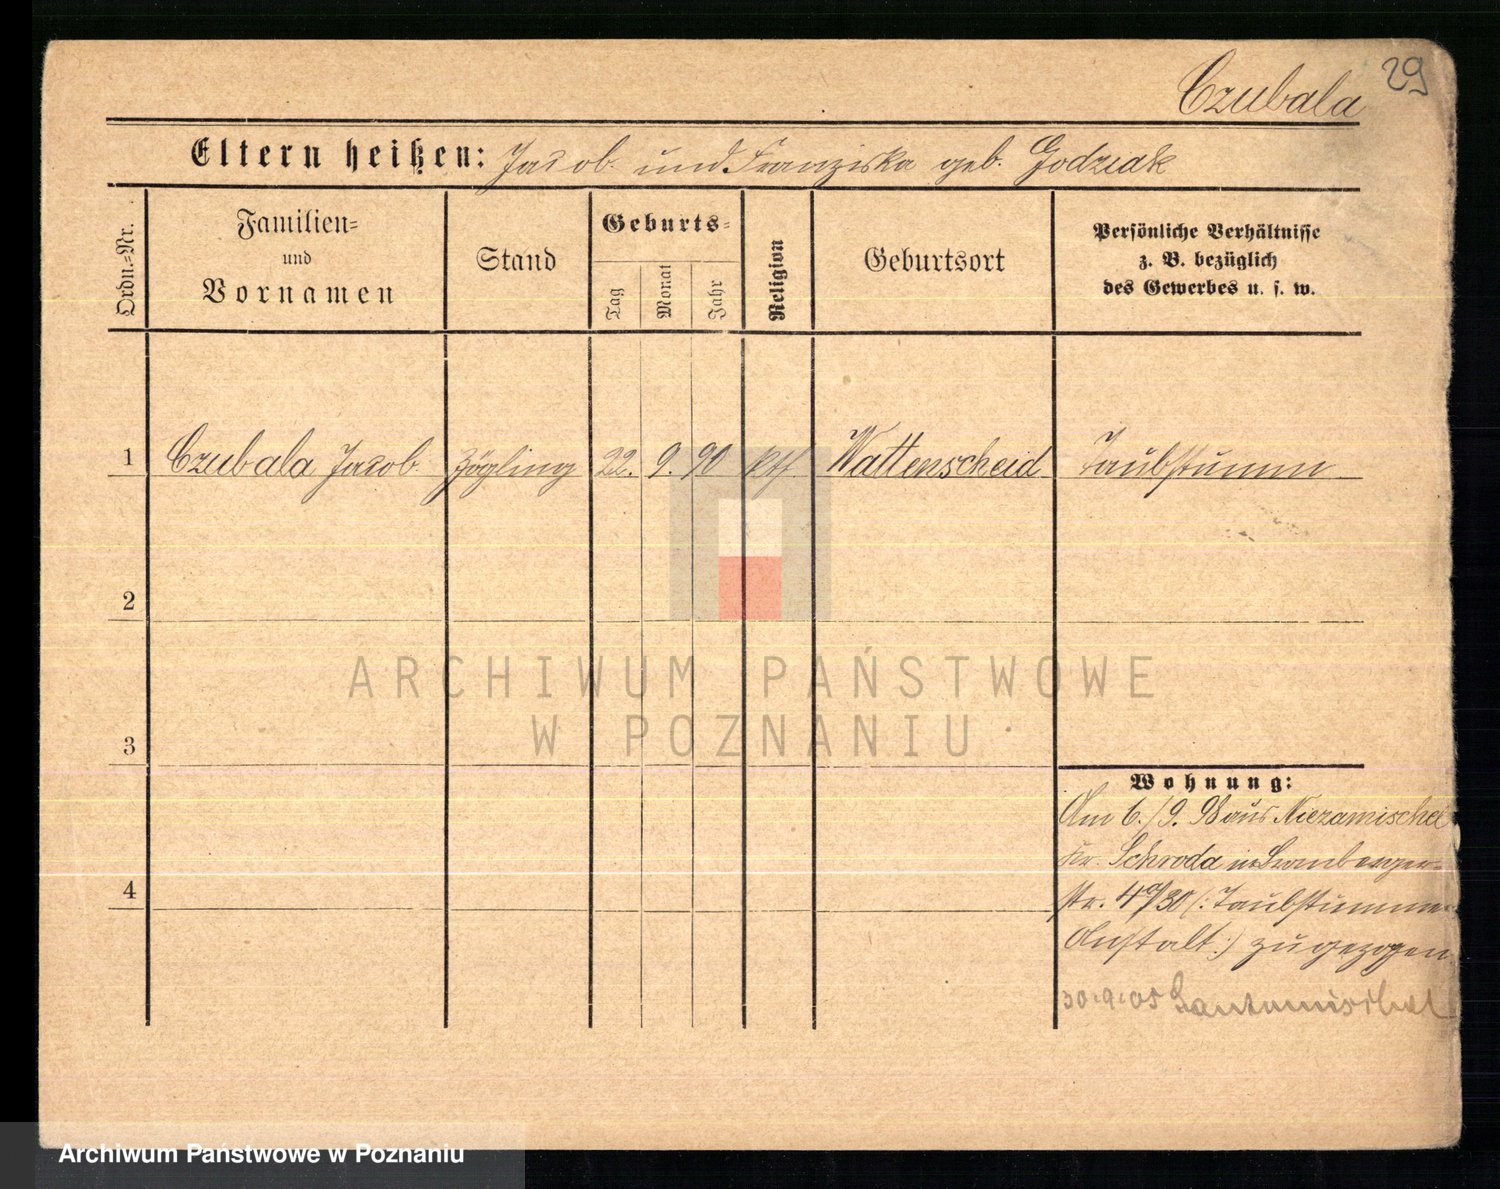 29
Czubala
Eltern heißen: Jacob und Franziska geb. Godziak
Ordn.-Nr.
Familien-
und
Vornamen
Stand
Geburts-
Tag
Monat
Jahr
Religion
Geburtsort
Persönliche Verhältnisse
z. B. bezüglich
des Gewerbes u. s. w.
1 Czubala Jacob Zögling 22. 9. 90 kth. Wattenscheid Taubstumm
2
3
4
Wohnung:
Am 6./9. 98 aus Niezamischel
Kr. Schroda in Bromberger-
str. 4 /30 (: Taubstummen
Anstalt :) zugezogen.
30.9.05 Santomischel
ARCHIWUM PAŃSTWOWE
W POZNANIU
Archiwum Państwowe w Poznaniu